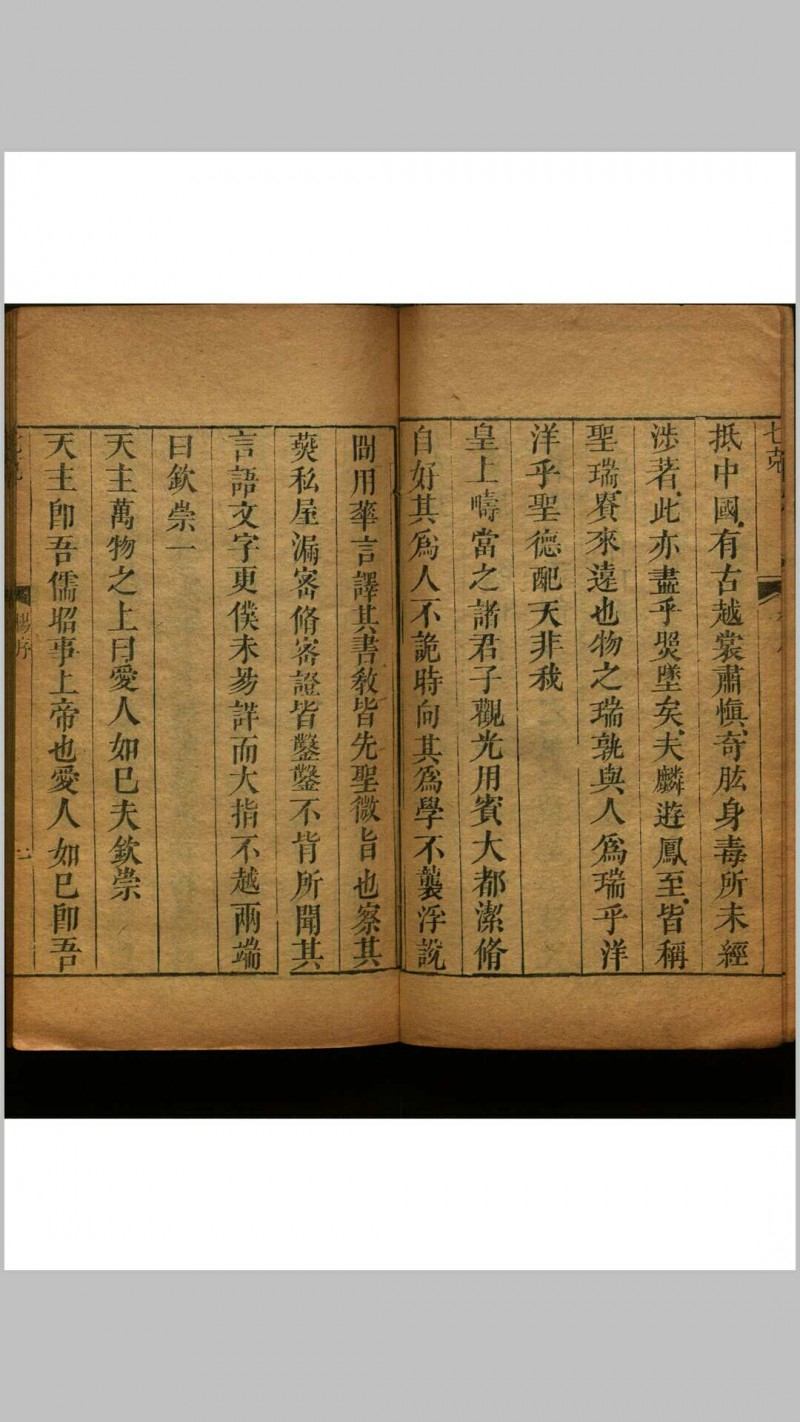 七克
抵中國有古越裳肅愼奇肱身毒所未經
涉者此亦盡乎煛墬矣夫麟遊鳳至皆稱
聖瑞賚來遠也物之瑞孰與人爲瑞乎洋
洋乎聖德配天非我
皇上疇當之諸君子觀光用賓大都潔脩
自好其爲人不詭時向其爲學不襲浮說
間用華言譯其書敎皆先聖微旨也察其
燕私屋漏密脩密證皆鑿鑿不背所聞其
言語文字更僕未易詳而大指不越兩端
曰欽崇一
天主萬物之上曰愛人如已夫欽崇
天主卽吾儒昭事上帝也愛人如已卽吾
楊序